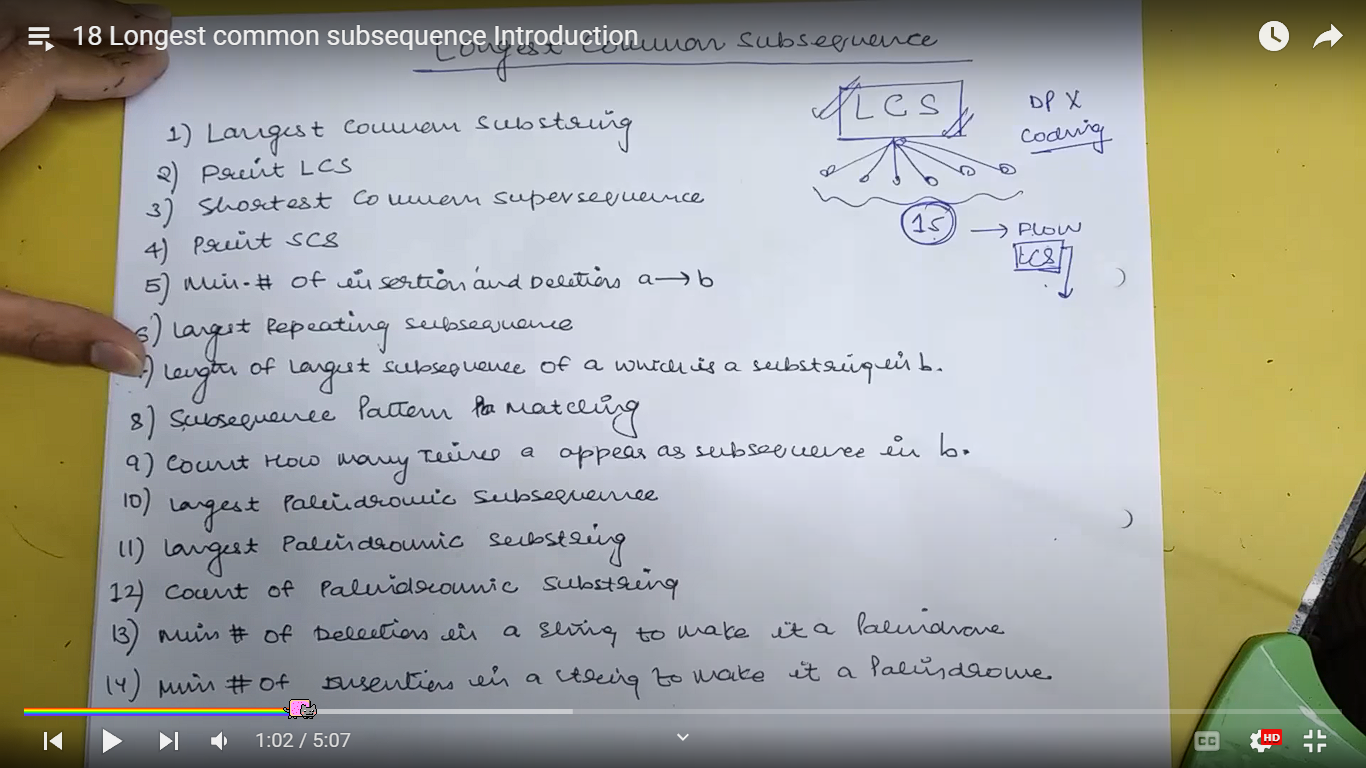 18 Longest common subsequence Introduction
Longest Common Subsequence
LCS
DP X
Coding
15 → Flow
LCS
1) Largest Common Substring
2) Print LCS
3) Shortest Common supersequence
4) Print SCS
5) Min # of insertion and Deletions a → b
6) Largest Repeating subsequence
7) Length of largest subsequence of a which is a substring in b.
8) Subsequence Pattern Matching
9) Count How many times a appear as subsequence in b.
10) Largest Palindromic Subsequence
11) Largest Palindromic Substring
12) Count of Palindromic Substring
13) Min # of Deletion in a string to make it a Palindrome
14) Min # of Insertion in a string to make it a Palindrome
1:02 / 5:07
CC
HD